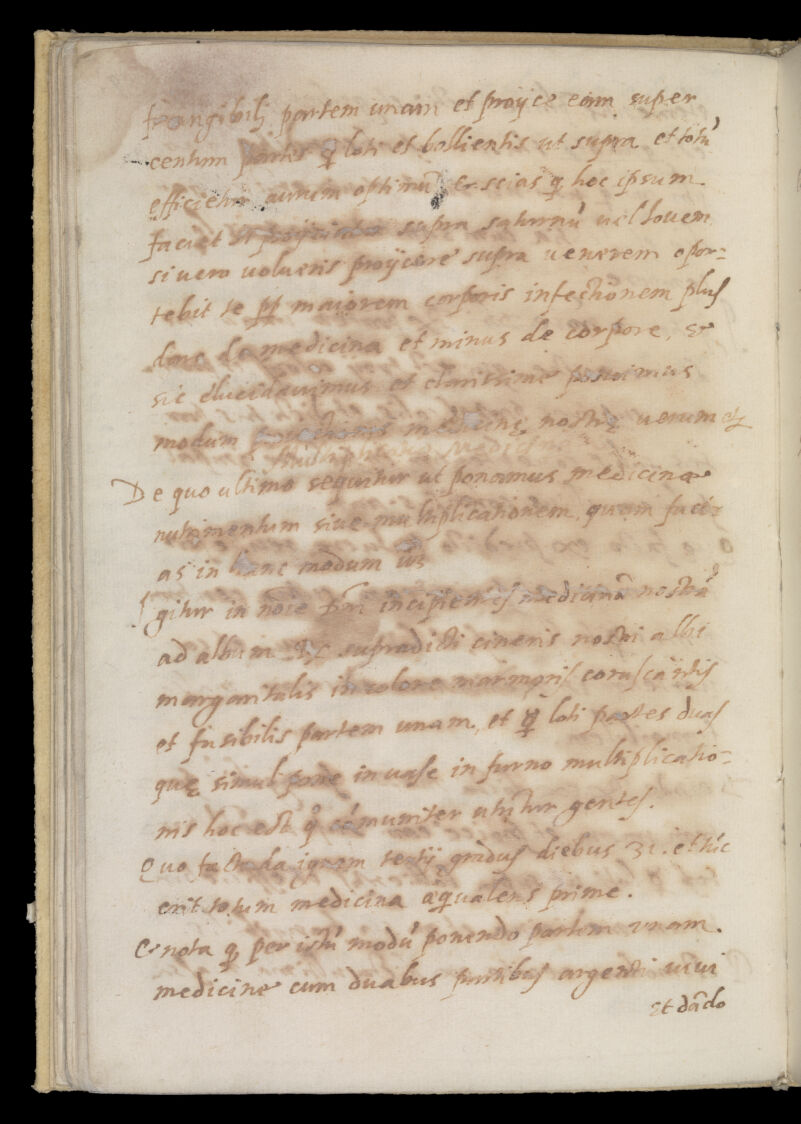 frangibilj partem unam et proijce eam super
centum partis ☿ loti et bollientis ut supra et totũ
efficietur aurum optimũ Et scias q̃ hoc ipsum
faciet si proijciatur supra saturnũ uel Iouem
si uero volueris proijcere supra uenerem opor=
tebit te pp̃ maiorem corporis infectionem plus
dare de medicina et minus de corpore, &
sic elucidauimus et clarissime posuimus
modum medicinę nostrę uerum
Multiplicatio Medicinę
De quo ultimo sequitur ut ponamus medicinae
nutrimentum siue multiplicationem quam faci=
as in hunc modum
Igitur in nõie Dñi incipientes medicinã nostrã
ad album supradicti cineris nostri albi
margaritalis in colore marmoris coruscãtis
et fusibilis partem unam, et ☿ loti partes duas
quę simul pone in uase in furno multiplicatio=
nis hoc est q̊ cõmuniter utitur gentes.
Quo facto da ignem tertij gradus diebus 31. et hic
erit totum medicina aequalens prime.
Et nota q̃ per istũ modũ ponendo partem vnam
medicine cum duabus partibus argenti uiui
Et dãdo